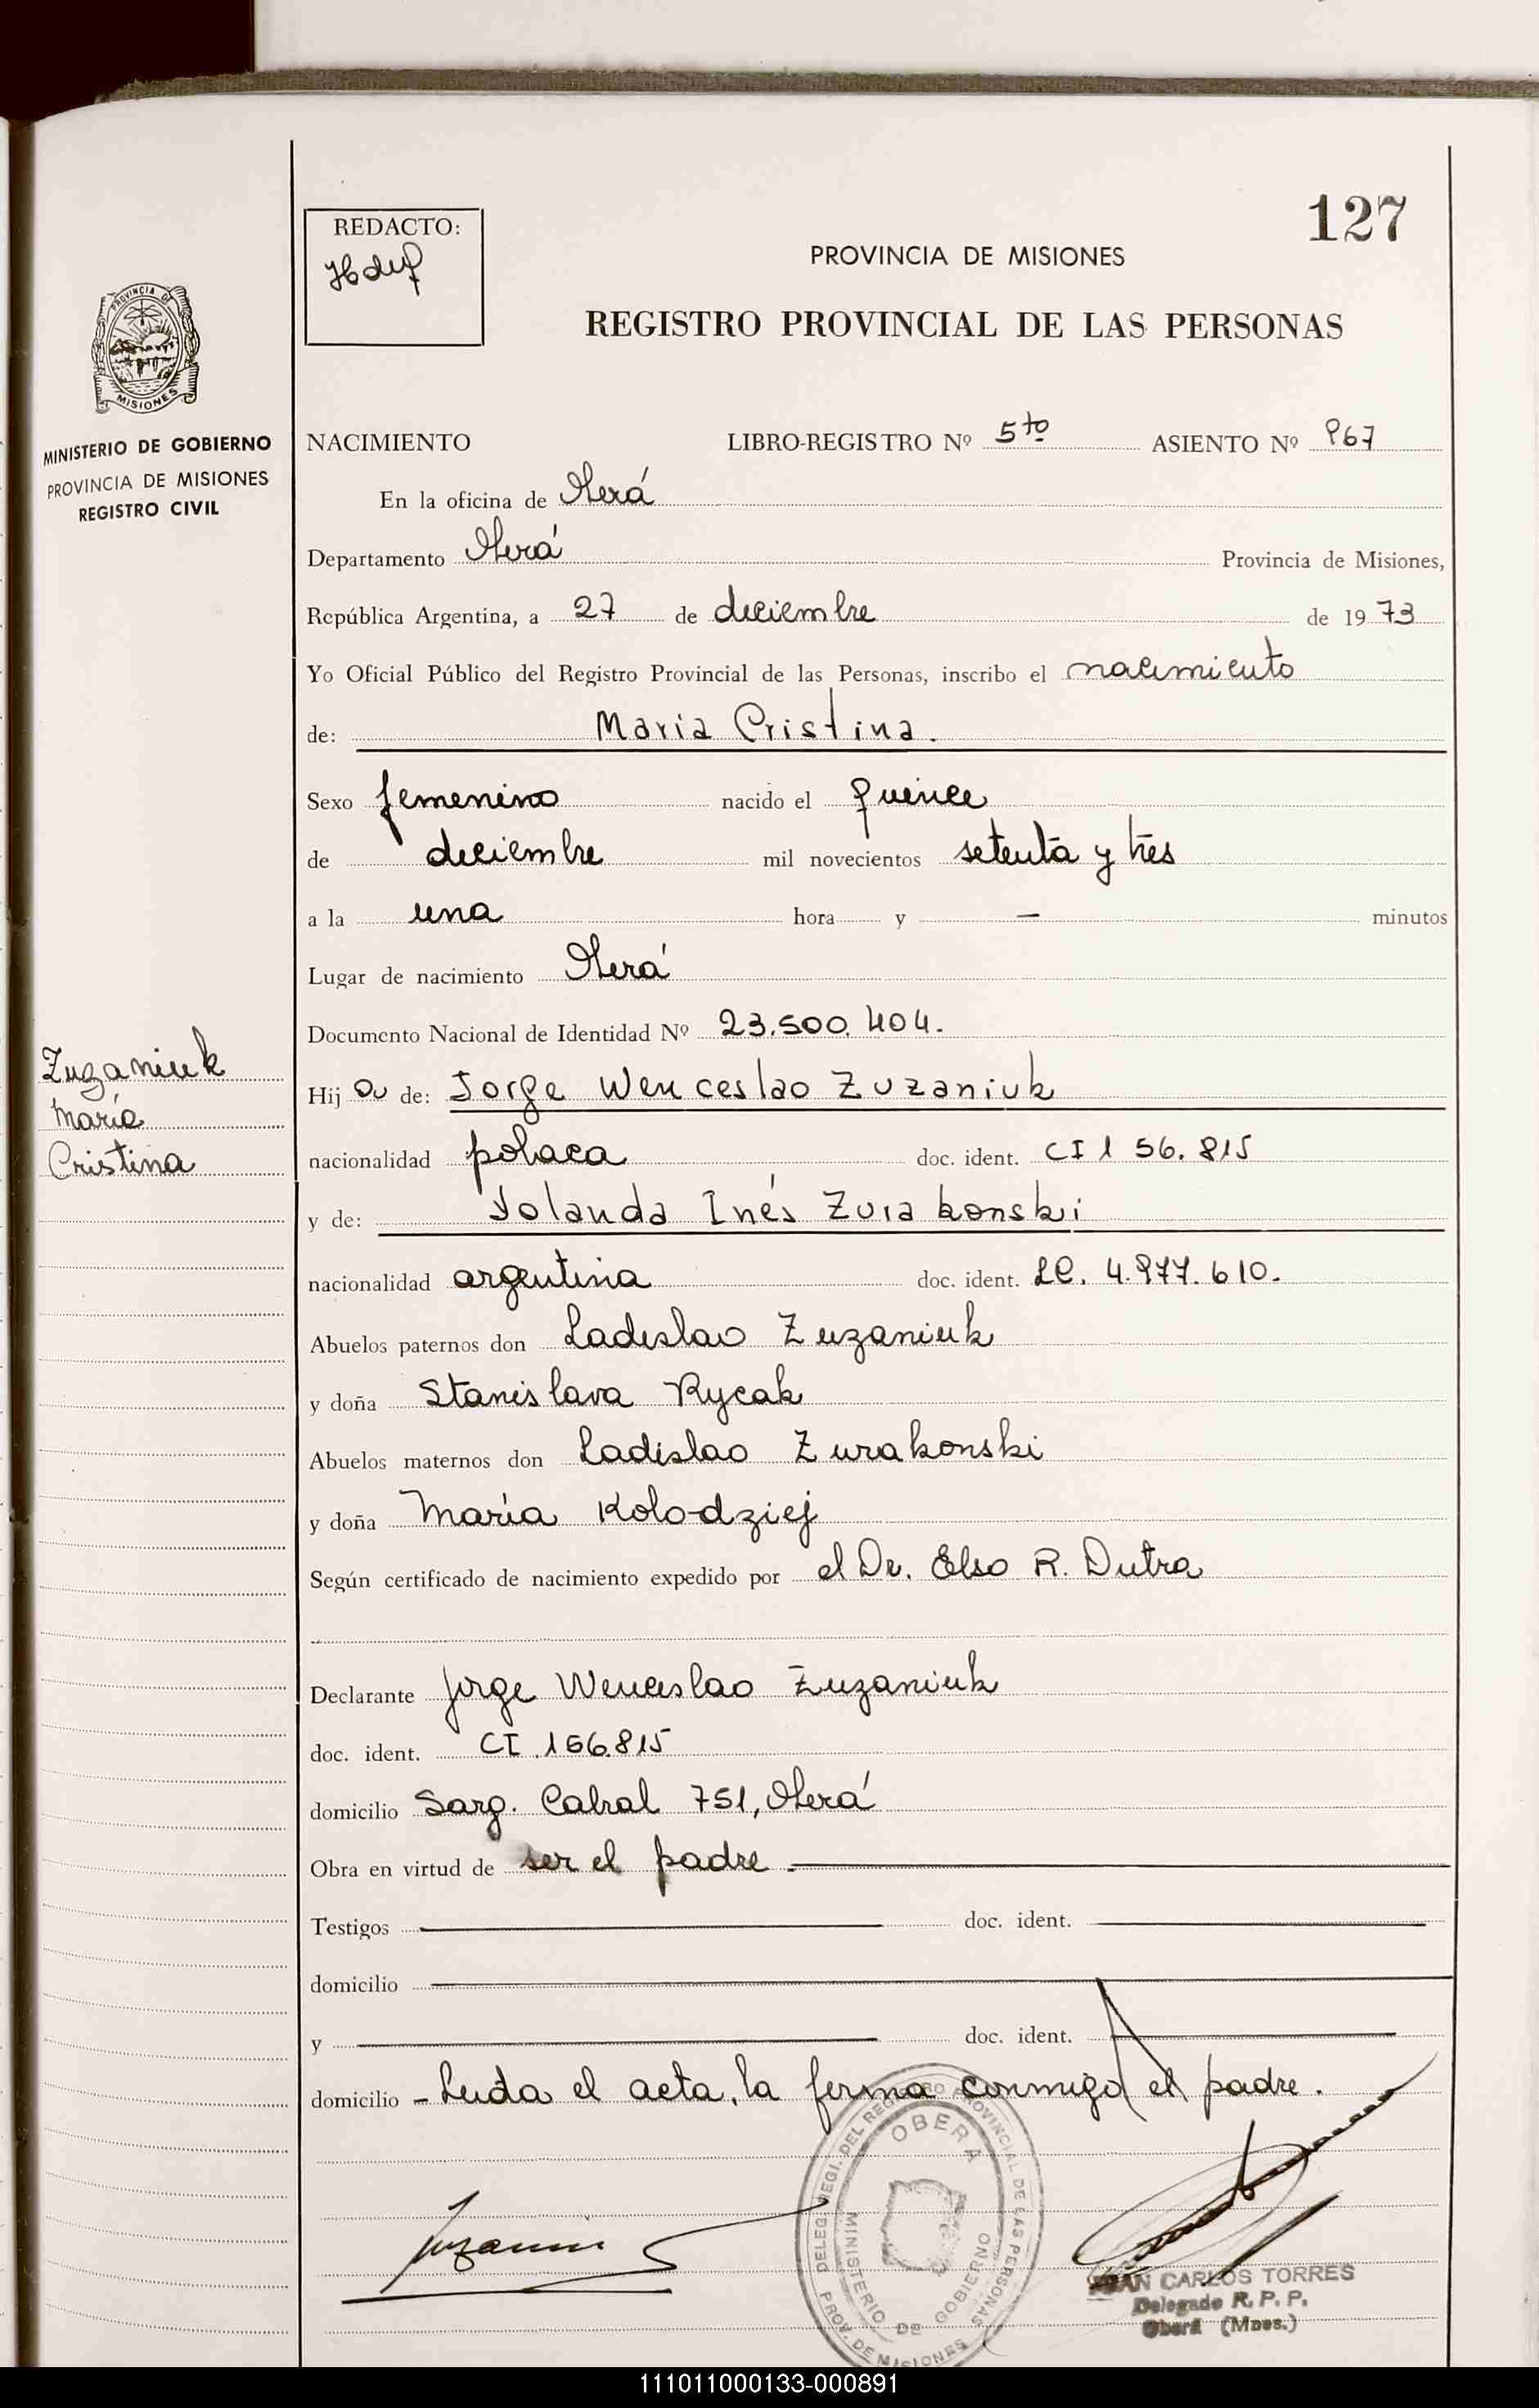 127
REDACTO:
PROVINCIA DE MISIONES
REGISTRO PROVINCIAL DE LAS PERSONAS
PROVINCIA DE
MISIONES
MINISTERIO DE GOBIERNO
PROVINCIA DE MISIONES
REGISTRO CIVIL
NACIMIENTO LIBRO-REGISTRO Nº 5to ASIENTO Nº 967
En la oficina de Oberá
Departamento Oberá Provincia de Misiones,
República Argentina, a 27 de diciembre de 1973
Yo Oficial Público del Registro Provincial de las Personas, inscribo el nacimiento
de: María Cristina.
Sexo femenino nacido el quince
de diciembre mil novecientos setenta y tres
a la una hora y — minutos
Lugar de nacimiento Oberá
Documento Nacional de Identidad Nº 23.500.404.
Zuzaniuk
María
Cristina
Hija de: Jorge Wenceslao Zuzaniuk
nacionalidad polaca doc. ident. CI 156.815
y de: Yolanda Inés Zurakonski
nacionalidad argentina doc. ident. LC. 4.977.610.
Abuelos paternos don Ladislao Zuzaniuk
y doña Stanislava Rycak
Abuelos maternos don Ladislao Zurakonski
y doña María Kolodziej
Según certificado de nacimiento expedido por el Dr. Elso R. Dutra
Declarante Jorge Wenceslao Zuzaniuk
doc. ident. CI.156.815
domicilio Sarg. Cabral 751, Oberá
Obra en virtud de ser el padre.
Testigos doc. ident.
domicilio
y doc. ident.
domicilio - Leída el acta, la firma conmigo el padre.
DELEG. REGI. DEL REGISTRO PROVINCIAL DE LAS PERSONAS
OBERA
MINISTERIO DE GOBIERNO
PROV. DE MISIONES
JUAN CARLOS TORRES
Delegado R. P. P.
Oberá (Mnes.)
111011000133-000891